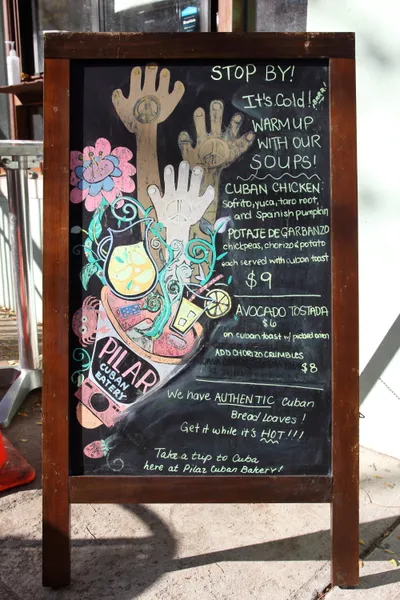 STOP BY!
It's Cold! BRRR!
WARM UP
WITH OUR
SOUPS!
CUBAN CHICKEN:
Sofrito, yuca, taro root,
and Spanish pumpkin
POTAJE DE GARBANZO
chickpeas, chorizo & potato
each served with cuban toast
$9
AVOCADO TOSTADA
$6
on cuban toast w/ pickled onion
ADD CHORIZO CRUMBLES
$8
PILAR
CUBAN
EATERY
We have AUTHENTIC Cuban
Bread loaves!
Get it while it's HOT!!!
Take a trip to Cuba
here at Pilar Cuban Bakery!